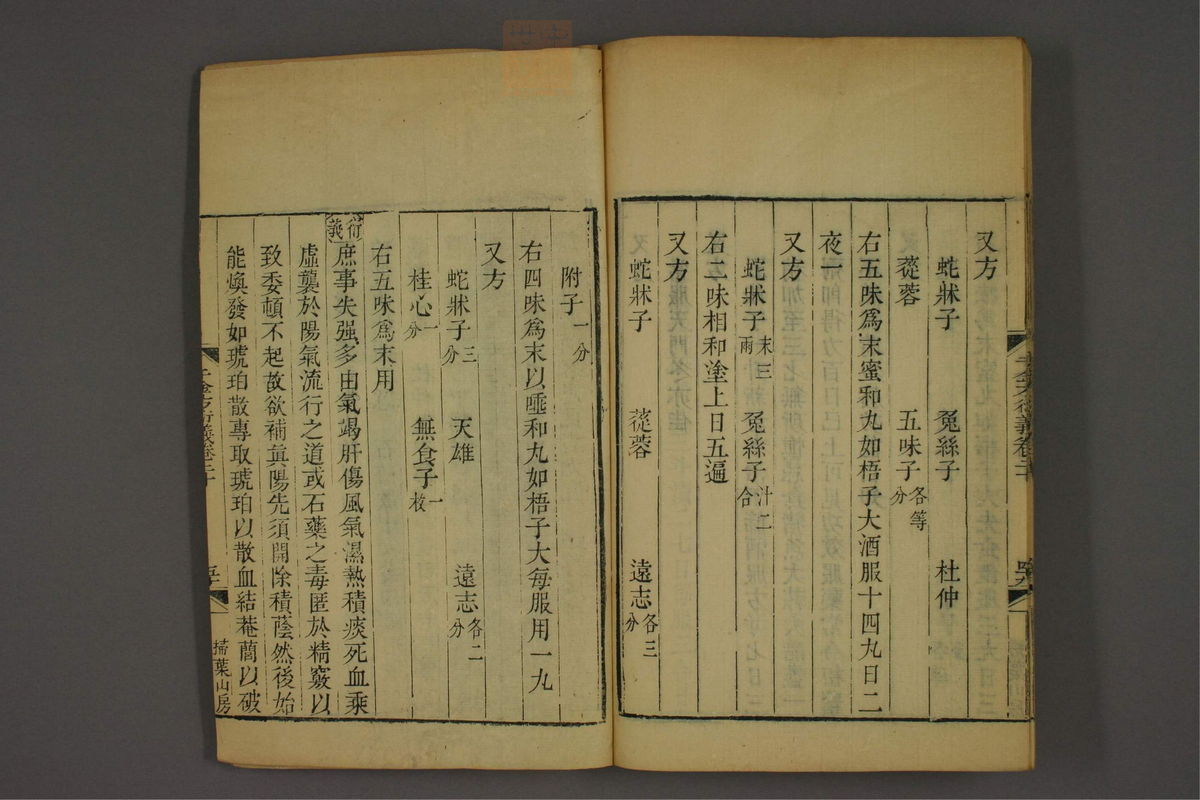 又方
蛇牀子　兔絲子　杜仲
蓯蓉　五味子各等分
右五味爲末蜜和丸如梧子大酒服十四丸日二
夜一
又方
蛇牀子末三兩　兔絲子汁二合
右二味相和塗上日五遍
又方
蛇牀子　蓯蓉　遠志各三分
附子一分
右四味爲末以唾和丸如梧子大每服用一丸
又方
蛇牀子三分　天雄　遠志各二分
桂心一分　無食子一枚
右五味爲末用
衍義
庶事失强多由氣竭肝傷風氣濕熱積痰死血乘
虛襲於陽氣流行之道或石藥之毒匿於精竅以
致委頓不起故欲補眞陽先須開除積蔭然後始
能煥發如琥珀散專取琥珀以散血結菴䕡以破
千金方衍義卷二十
掃葉山房